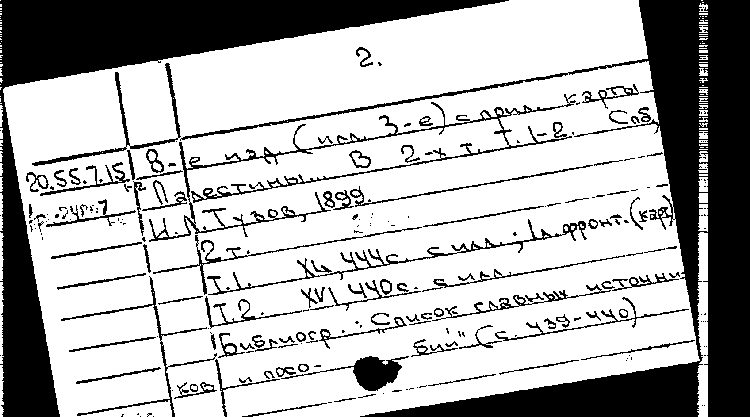 2.
8-е изд (илл. 3-е) с прил. карты
20.55.7.15 Палестины... В 2-х т. Т. 1-2. Спб,
И.Л. Тузов, 1899.
2 т.
Т.1. XII, 444с. с илл.; 1л. фронт. (карт)
Т.2. XVI, 440с. с илл.
Библиогр.: "Список главных источни-
ков и посо- бий" (с. 439-440).